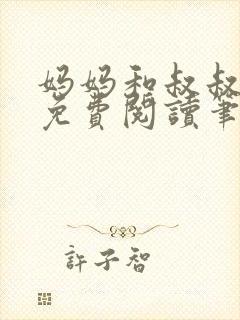 妈妈和叔叔
免費閱讀筆
許子智